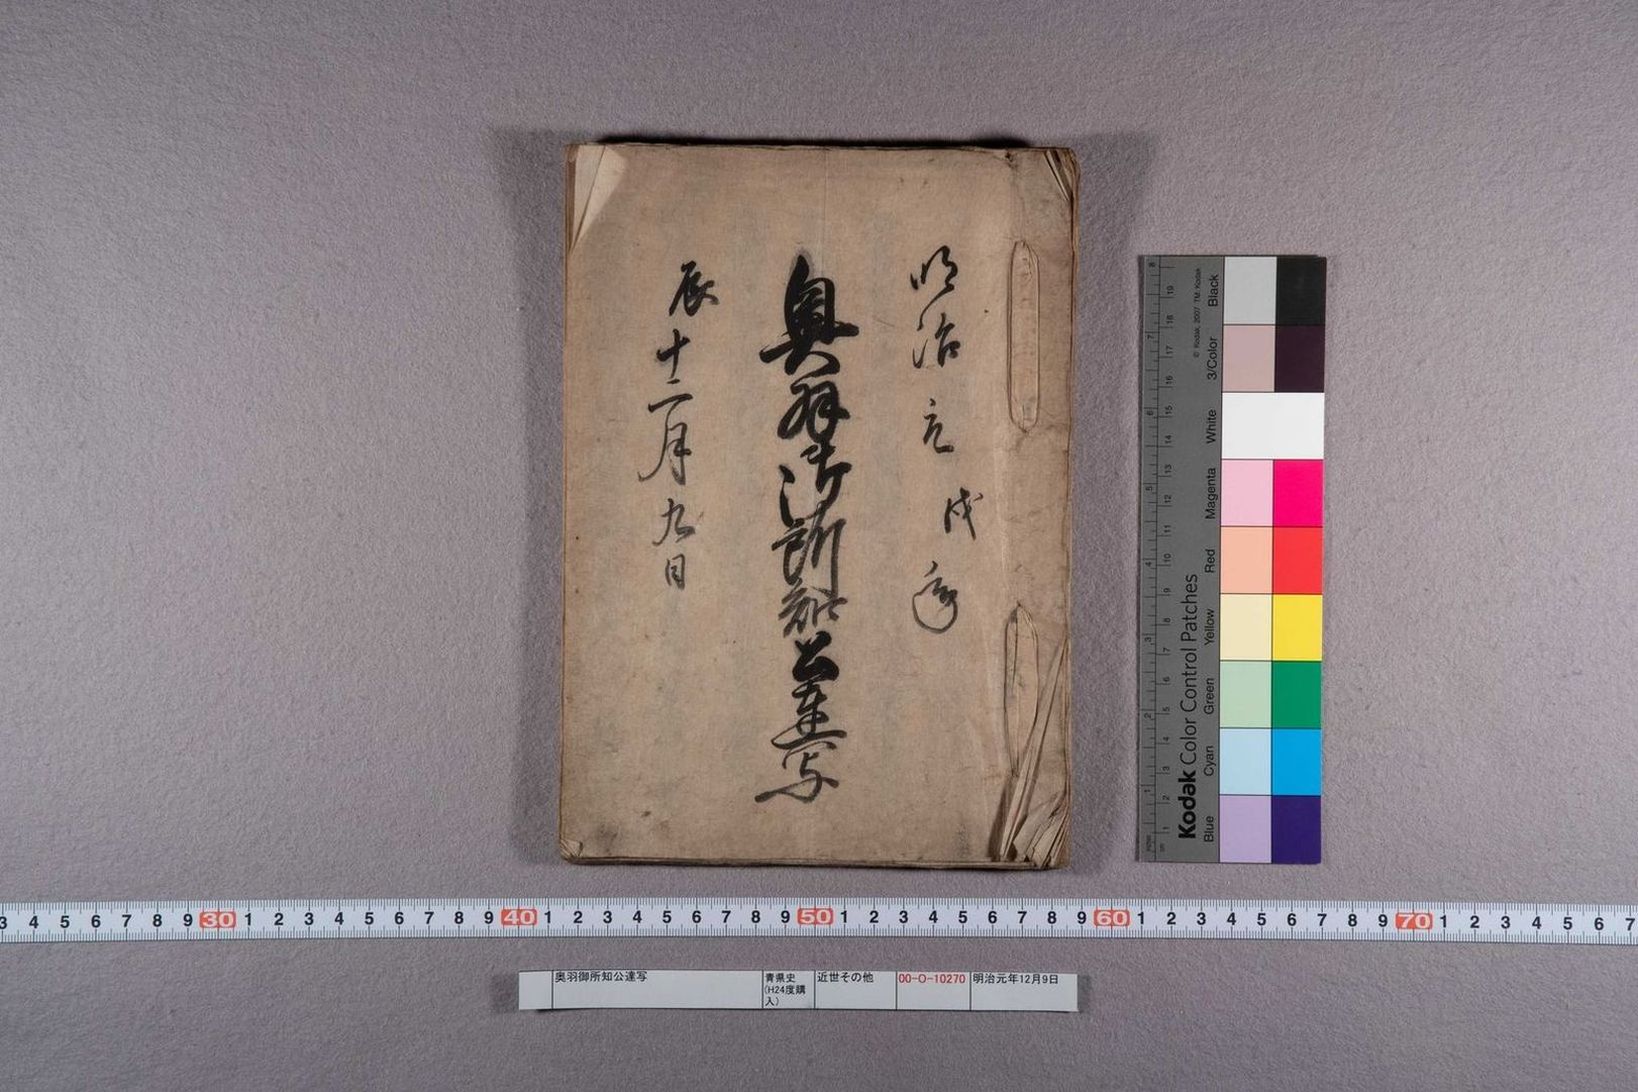 明治元戊年
奥羽御所知公達写
辰十二月九日
Kodak Color Control Patches
© Kodak, 2007 TM: Kodak
Blue
Cyan
Green
Yellow
Red
Magenta
White
3/Color
Black
3 4 5 6 7 8 9 30 1 2 3 4 5 6 7 8 9 40 1 2 3 4 5 6 7 8 9 50 1 2 3 4 5 6 7 8 9 60 1 2 3 4 5 6 7 8 9 70 1 2 3 4 5 6 7
奥羽御所知公達写
青県史
(H24度購
入)
近世その他
00-O-10270
明治元年12月9日